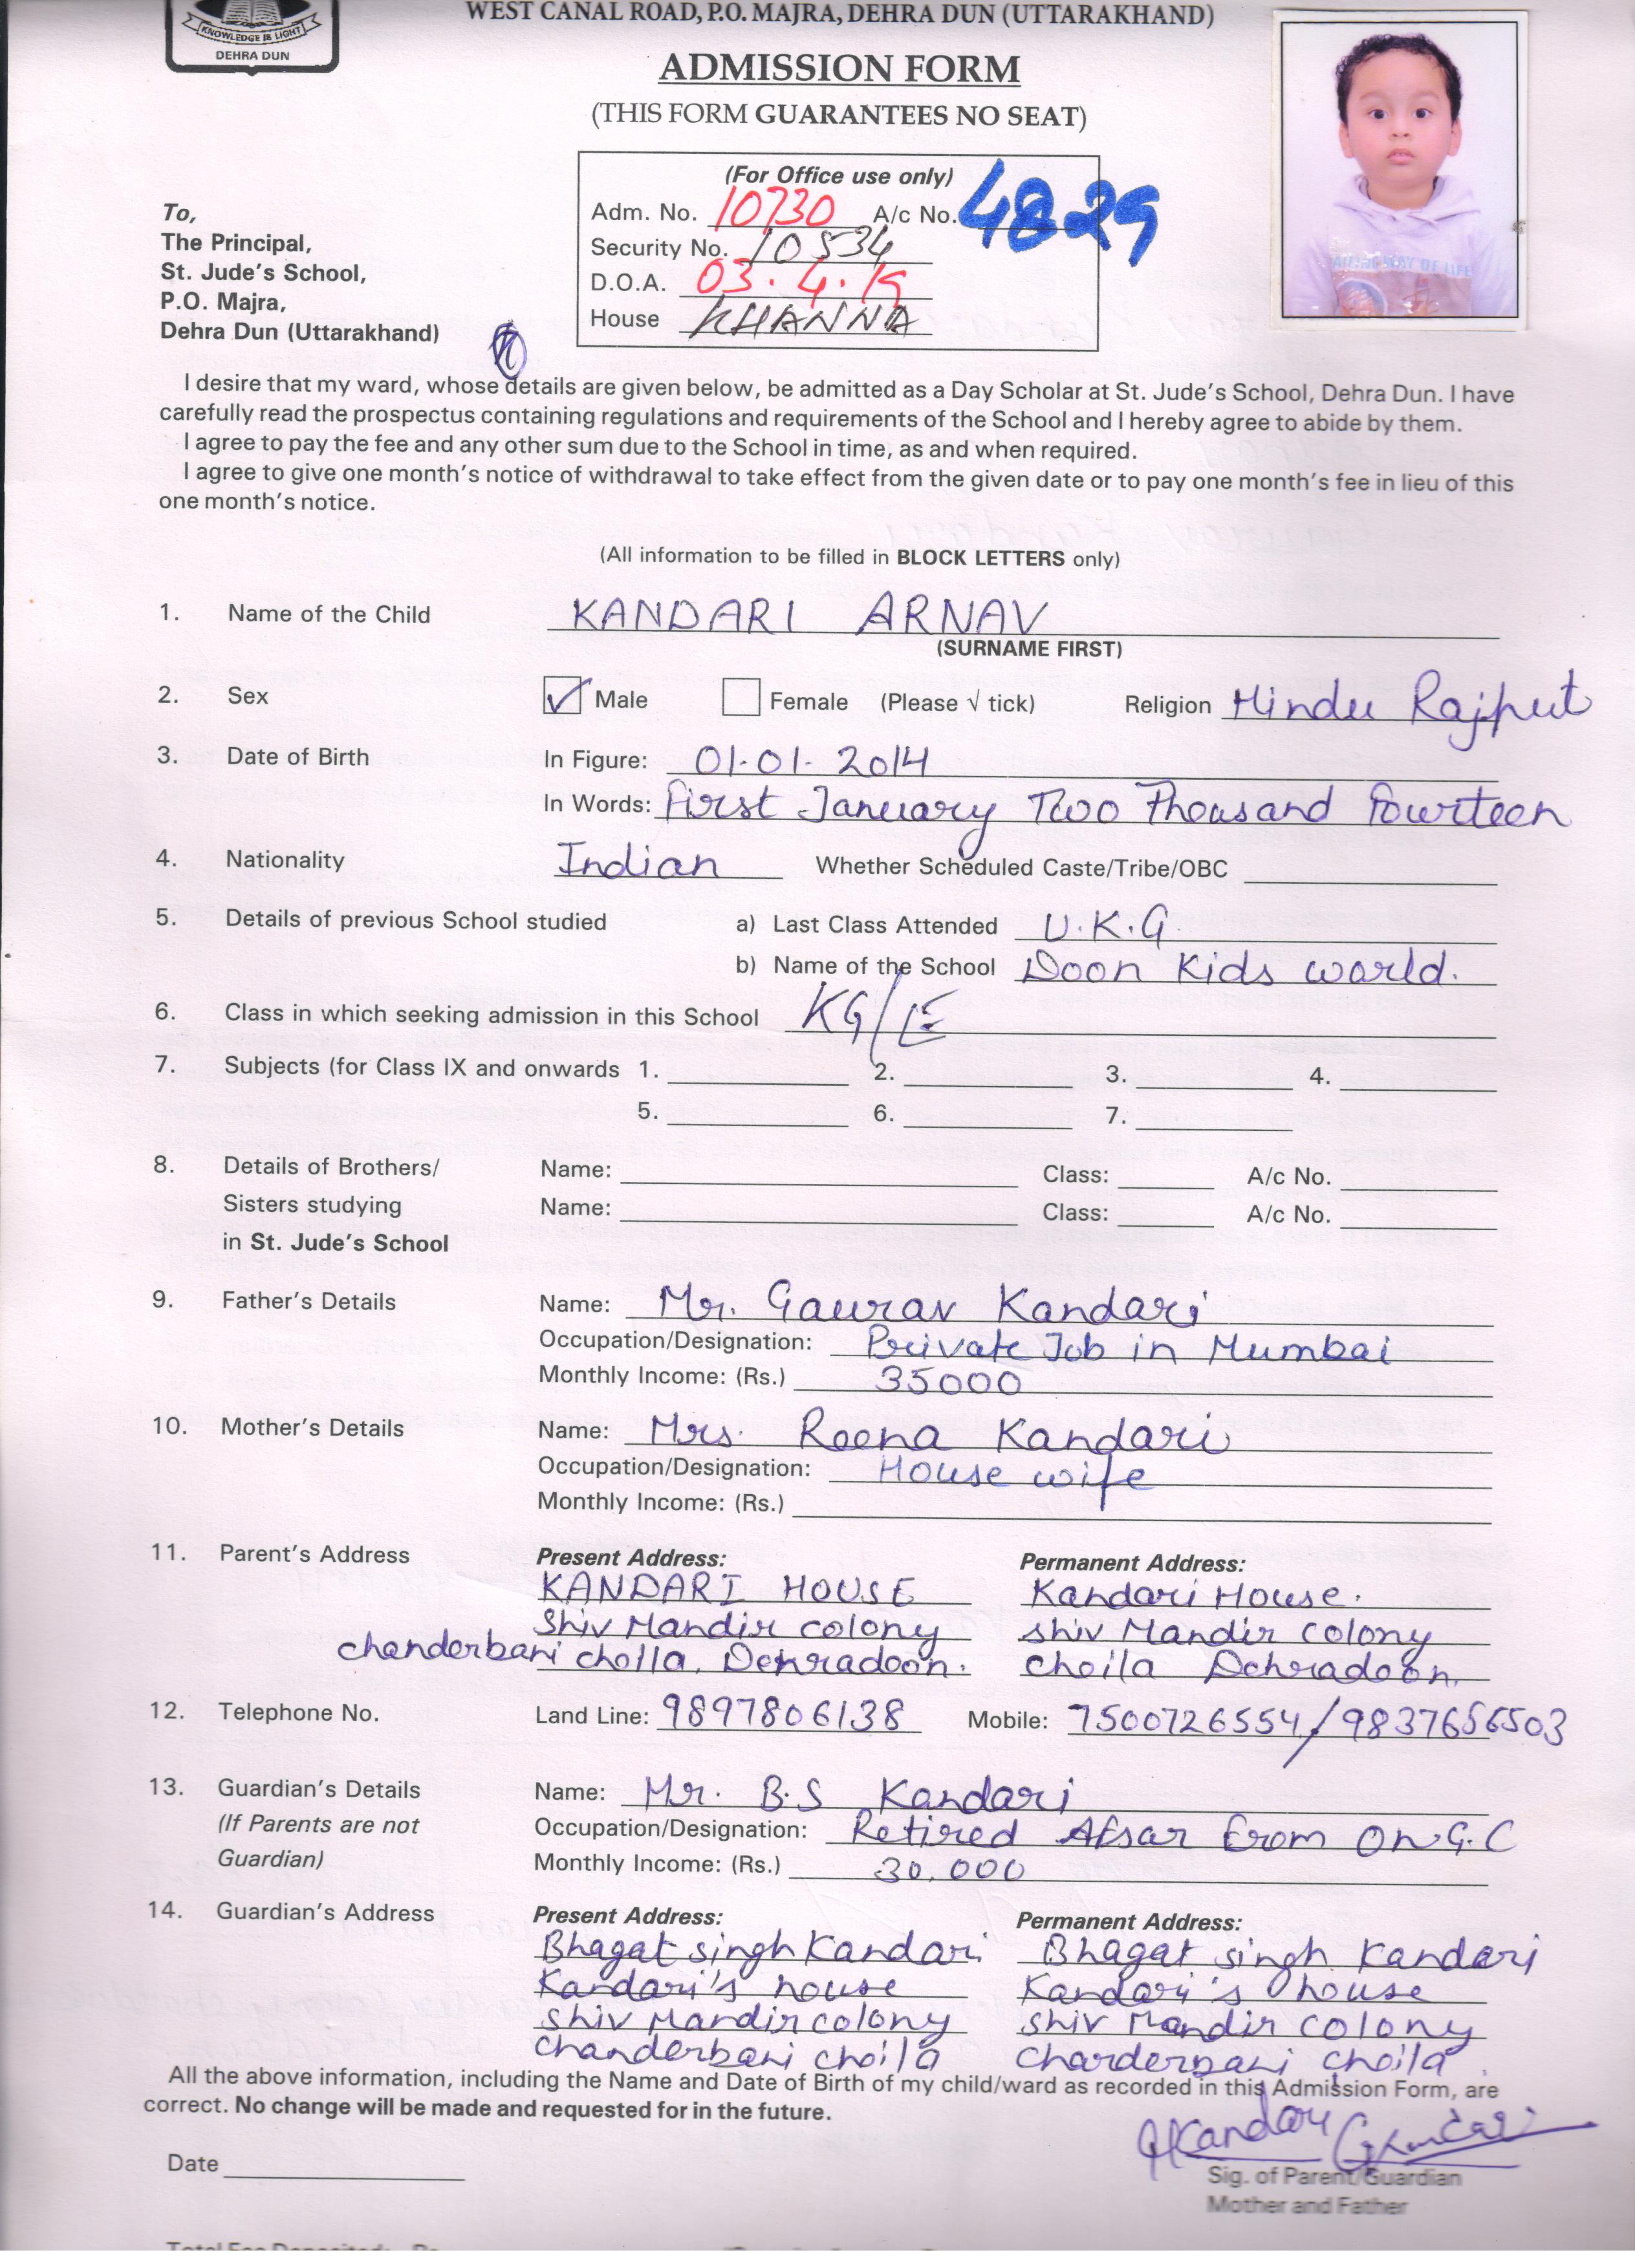 WEST CANAL ROAD, P.O. MAJRA, DEHRA DUN (UTTARAKHAND)
KNOWLEDGE IS LIGHT
DEHRA DUN
ADMISSION FORM
(THIS FORM GUARANTEES NO SEAT)
(For Office use only)
Adm. No. 10730 A/c No. 4829
Security No. 10534
D.O.A. 03.4.19
House KHANNA
To,
The Principal,
St. Jude's School,
P.O. Majra,
Dehra Dun (Uttarakhand)
I desire that my ward, whose details are given below, be admitted as a Day Scholar at St. Jude's School, Dehra Dun. I have
carefully read the prospectus containing regulations and requirements of the School and I hereby agree to abide by them.
I agree to pay the fee and any other sum due to the School in time, as and when required.
I agree to give one month's notice of withdrawal to take effect from the given date or to pay one month's fee in lieu of this
one month's notice.
(All information to be filled in BLOCK LETTERS only)
1. Name of the Child KANDARI ARNAV
(SURNAME FIRST)
2. Sex Male Female (Please √ tick) Religion Hindu Rajput
3. Date of Birth In Figure: 01.01.2014
In Words: First January Two Thousand Fourteen
4. Nationality Indian Whether Scheduled Caste/Tribe/OBC
5. Details of previous School studied a) Last Class Attended U.K.G
b) Name of the School Doon Kids world.
6. Class in which seeking admission in this School KG/E
7. Subjects (for Class IX and onwards 1. 2. 3. 4.
5. 6. 7.
8. Details of Brothers/ Name: Class: A/c No.
Sisters studying Name: Class: A/c No.
in St. Jude's School
9. Father's Details Name: Mr. Gaurav Kandari
Occupation/Designation: Private Job in Mumbai
Monthly Income: (Rs.) 35000
10. Mother's Details Name: Mrs. Reena Kandari
Occupation/Designation: House wife
Monthly Income: (Rs.)
11. Parent's Address Present Address: Permanent Address:
KANDARI HOUSE Kandari House.
Shiv Mandir colony shiv Mandir colony
chanderbani choila, Dehradoon. choila Dehradoon.
12. Telephone No. Land Line: 9897806138 Mobile: 7500726554/9837656503
13. Guardian's Details Name: Mr. B.S Kandari
(If Parents are not Occupation/Designation: Retired Afsar from ON.G.C
Guardian) Monthly Income: (Rs.) 30,000
14. Guardian's Address Present Address: Permanent Address:
Bhagat singh Kandari Bhagat singh Kandari
Kandari's house Kandari's house
shiv Mandir colony shiv Mandir colony
Chanderbani choila Chanderbani choila
All the above information, including the Name and Date of Birth of my child/ward as recorded in this Admission Form, are
correct. No change will be made and requested for in the future.
Date
Sig. of Parent/Guardian
Mother and Father